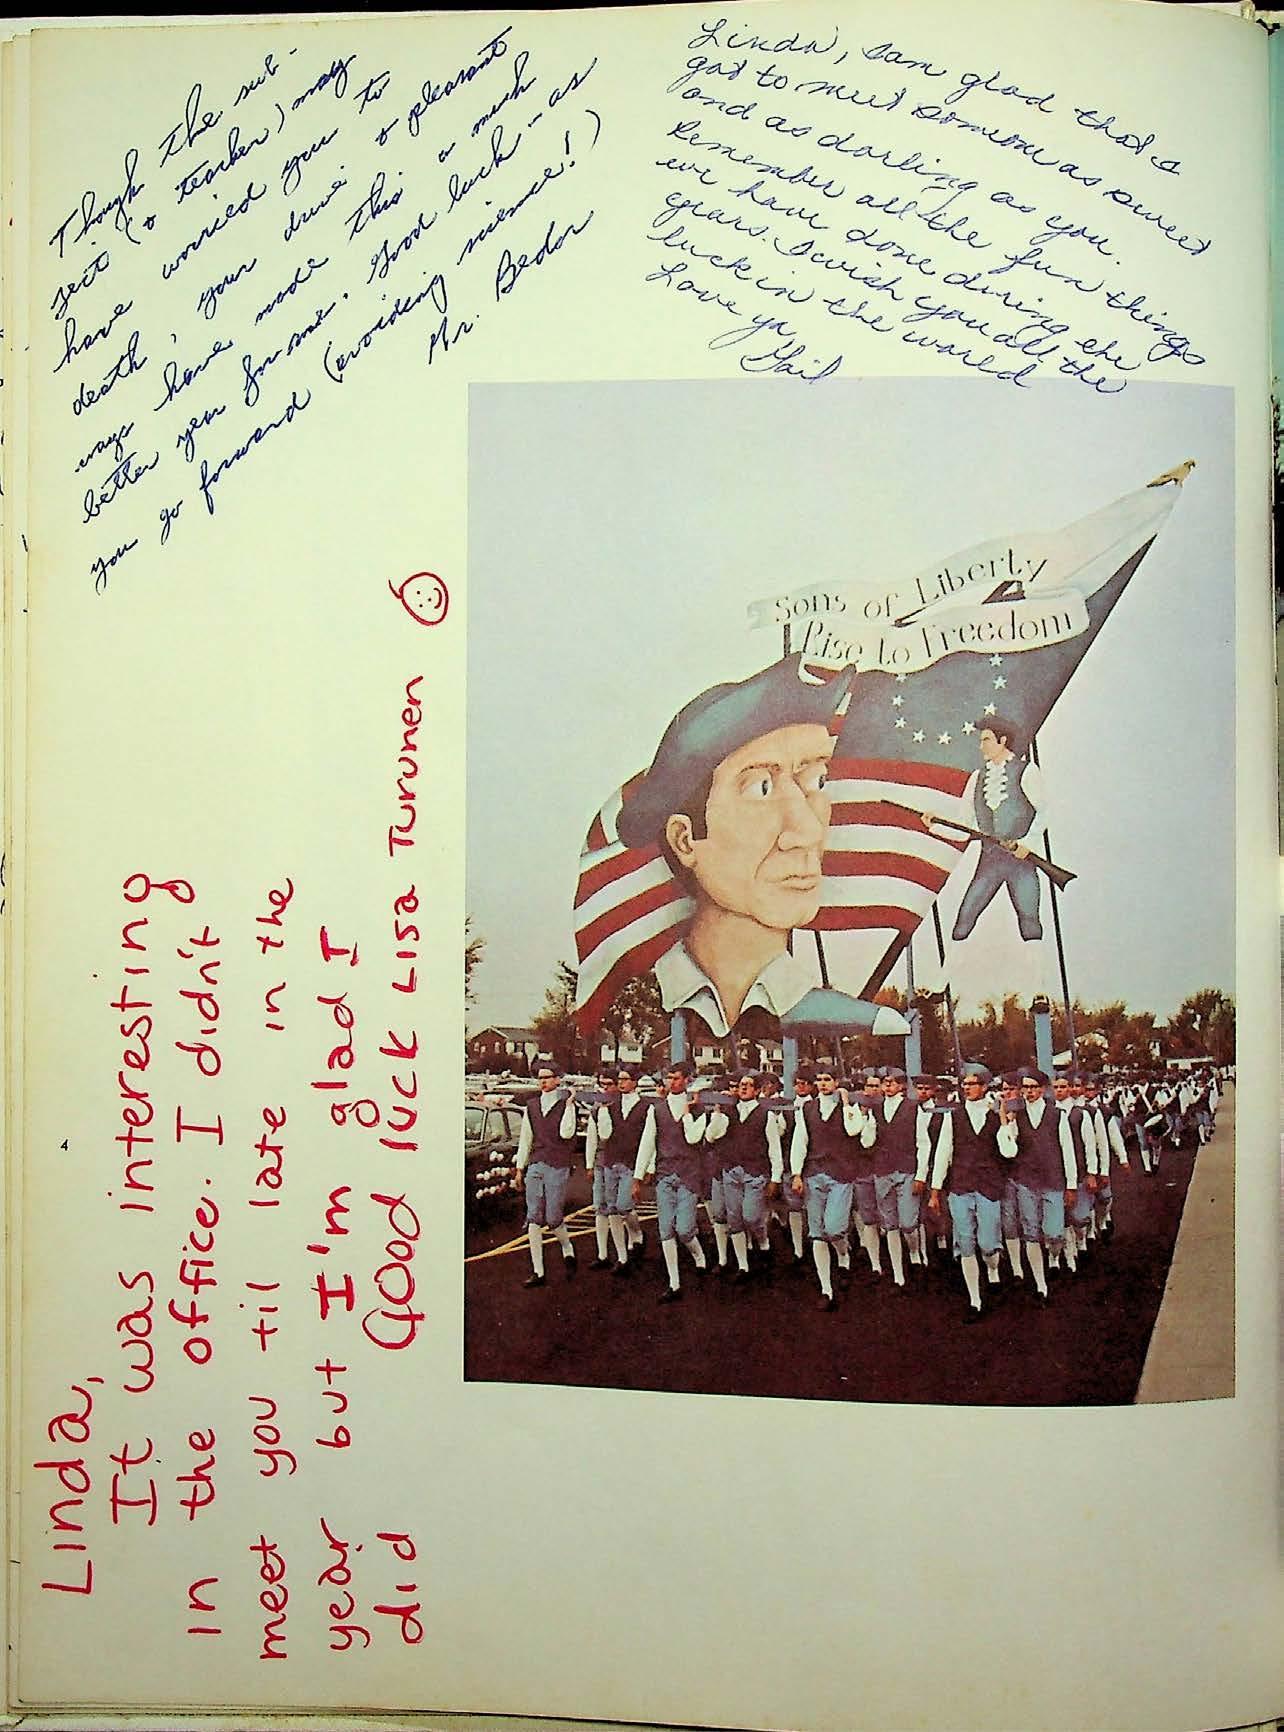 Though the sub-
ject (& teacher) may
have worried you to
death, your drive & pleasant
ways have made this a much
better year for me. Good luck as
you go forward (avoiding science!)
Mr. Bedor
Linda, I am glad that I
got to meet someone as sweet
and as darling as you.
Remember all the fun things
we have done during the
years. I wish you all the
luck in the world
Love ya,
Gail
Sons of Liberty
Rise to Freedom
Linda,
It was interesting
in the office. I didn't
meet you til late in the
year but I'm glad I
did Good luck Lisa Turunen
4